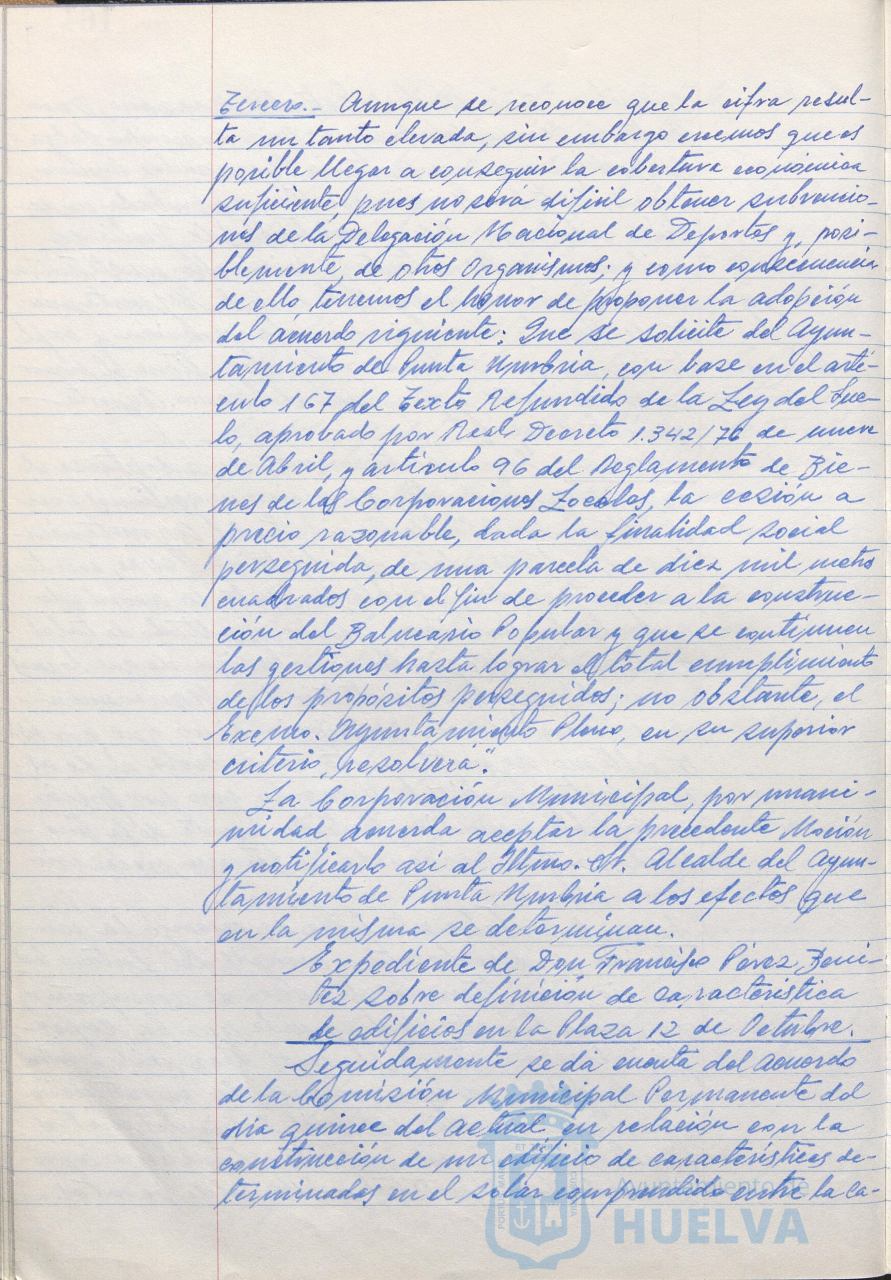 Tercero.- Aunque se reconoce que la cifra resul-
ta un tanto elevada, sin embargo creemos que es
posible llegar a conseguir la cobertura económica
suficiente, pues no será difícil obtener subvencio-
nes de la Delegación Nacional de Deportes y, posi-
blemente, de otros Organismos; y como consecuencia
de ello tenemos el honor de proponer la adopción
del acuerdo siguiente: Que se solicite del Ayun-
tamiento de Punta Umbría, con base en el artí-
culo 167 del Texto Refundido de la Ley del Sue-
lo, aprobado por Real Decreto 1.342/76 de nueve
de Abril, y artículo 96 del Reglamento de Bie-
nes de las Corporaciones Locales, la cesión a
precio razonable, dada la finalidad social
perseguida, de una parcela de diez mil metros
cuadrados con el fin de proceder a la construc-
ción del Balneario Popular y que se continuen
las gestiones hasta lograr el total cumplimiento
de los propósitos perseguidos; no obstante, el
Excmo. Ayuntamiento Pleno, en su superior
criterio, resolverá".
La Corporación Municipal, por unani-
midad, acuerda aceptar la precedente Moción
y notificarlo así al Iltmo. Sr. Alcalde del Ayun-
tamiento de Punta Umbría a los efectos que
en la misma se determinan.
Expediente de Don Francisco Pérez Beni-
tez sobre definición de característica
de edificios en la Plaza 12 de Octubre.
Seguidamente se dá cuenta del acuerdo
de la Comisión Municipal Permanente del
día quince del actual en relación con la
construcción de un edificio de características de-
terminadas en el solar comprendido entre la Ca-
Ayuntamiento de
HUELVA